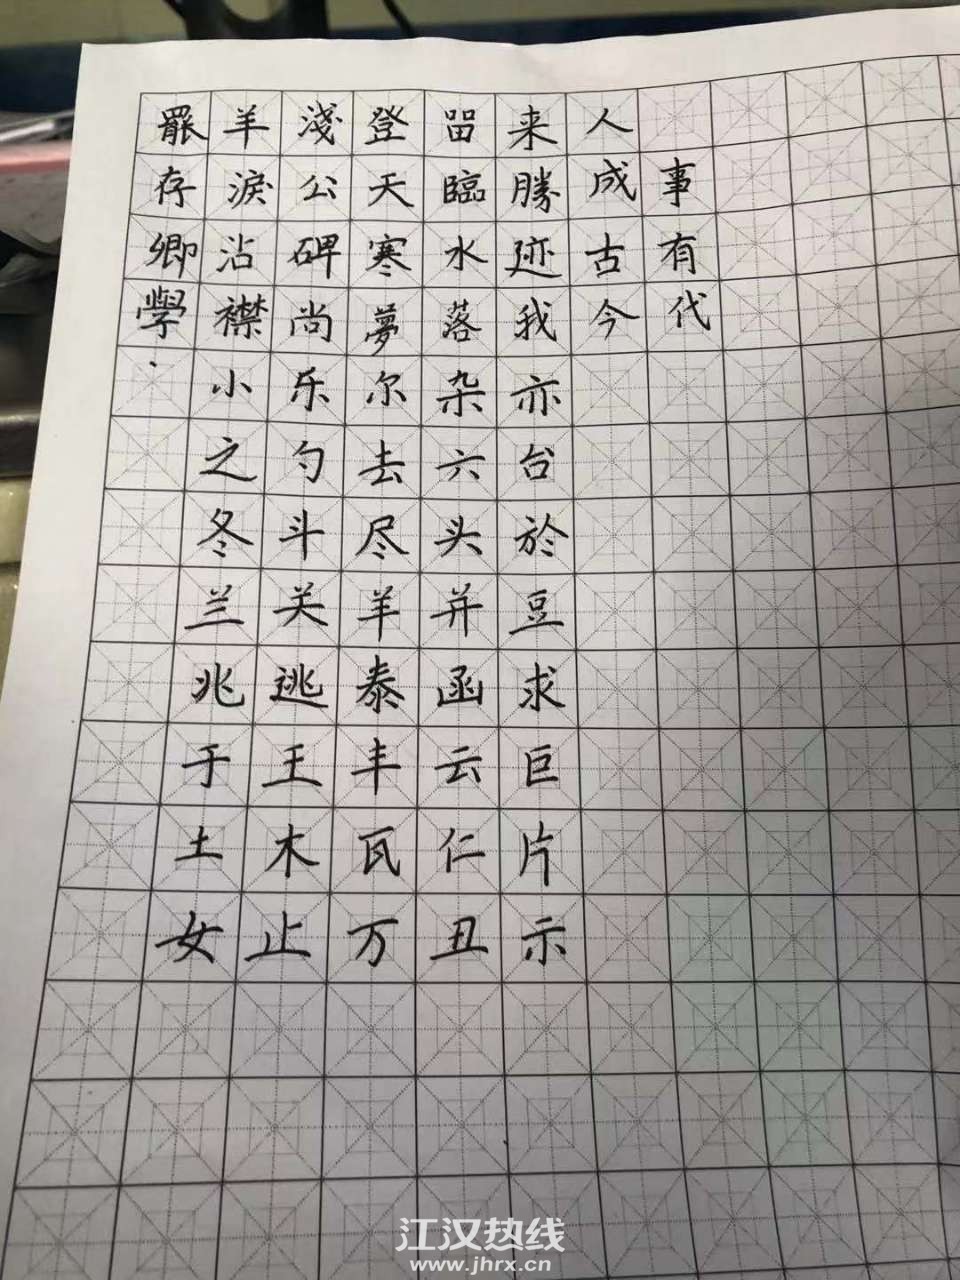 罷羊淺登留来人
存淚公天臨勝成事
卿沾碑寒水迹古有
學襟尚夢落我今代
小乐尔杂亦
之勺去六台
冬斗尽头於
兰关羊并豆
兆逃泰函求
于王丰云巨
土木瓦仁片
女止万丑示
江汉热线
www.jhrx.cn